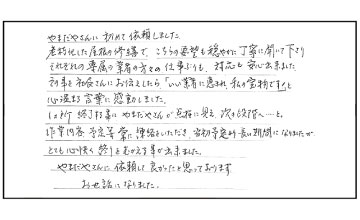 やまだやさんに初めて依頼しました。
老朽化した屋根の修繕で、こちらの要望も穏やかに丁寧に聞いて下さり
それぞれの専属の業者の方々の仕事ぶりも、対応も安心出来ました
列事を社長さんにお伝えしたら「いい業者に恵まれ、私の宝物です」と
心温まる言葉に感動しました。
1ヶ所終了毎にやまだやさんが点検に見え、次の段階へ…と。
作業内容、予定等常に連絡をいただき、当初予定より長い期間になりましたが
とても心快く終りをむかえる事が出来ました。
やまだやさんに依頼して良かったと思っております
お世話になりました。